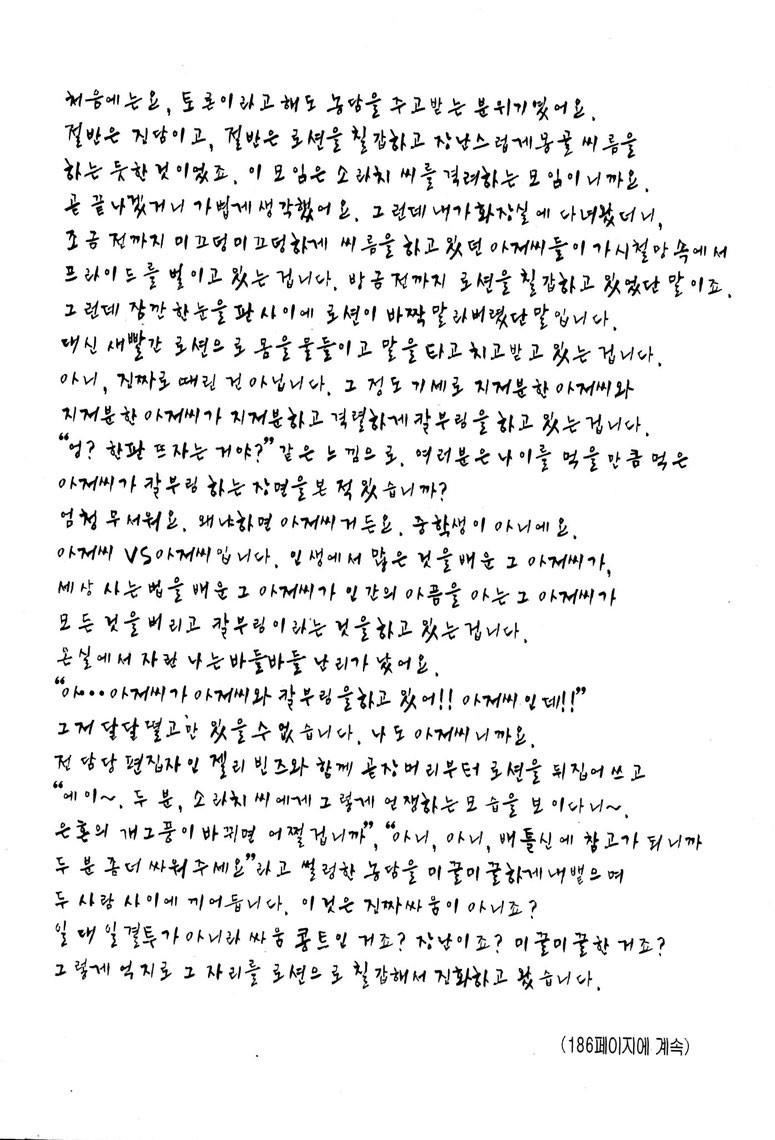 처음에는요, 토론이라고 해도 농담을 주고받는 분위기였어요.
절반은 진담이고, 절반은 로션을 칠갑하고 장난스럽게 몽골 씨름을
하는 듯한 것이었죠. 이 모임은 소라치 씨를 격려하는 모임이니까요.
곧 끝나겠거니 가볍게 생각했어요. 그런데 내가 화장실에 다녀왔더니,
조금 전까지 미끄덩미끄덩하게 씨름을 하고 있던 아저씨들이 가시철망 속에서
프라이드를 벌이고 있는 겁니다. 방금 전까지 로션을 칠갑하고 있었단 말이죠.
그런데 잠깐 한눈을 판 사이에 로션이 바짝 말라버렸단 말입니다.
대신 새빨간 로션으로 몸을 물들이고 말을 타고 치고받고 있는 겁니다.
아니, 진짜로 때린 건 아닙니다. 그 정도 기세로 지저분한 아저씨와
지저분한 아저씨가 지저분하고 격렬하게 칼부림을 하고 있는 겁니다.
“엉? 한판 뜨자는 거야?” 같은 느낌으로. 여러분은 나이를 먹을 만큼 먹은
아저씨가 칼부림 하는 장면을 본 적 있습니까?
엄청 무서워요. 왜냐하면 아저씨거든요. 중학생이 아니에요.
아저씨 VS 아저씨입니다. 인생에서 많은 것을 배운 그 아저씨가,
세상 사는 법을 배운 그 아저씨가 인간의 아픔을 아는 그 아저씨가
모든 것을 버리고 칼부림이라는 것을 하고 있는 겁니다.
온실에서 자란 나는 바들바들 난리가 났어요.
“아…아저씨가 아저씨와 칼부림을 하고 있어!! 아저씨인데!!”
그저 달달 떨고만 있을 수 없습니다. 나도 아저씨니까요.
전 담당 편집자인 젤리빈즈와 함께 곧장 머리부터 로션을 뒤집어쓰고
“에이~. 두 분, 소라치 씨에게 그렇게 언쟁하는 모습을 보이다니~.
은혼의 개그풍이 바뀌면 어쩔 겁니까”, “아니, 아니, 배틀신에 참고가 되니까
두 분 좀더 싸워주세요”라고 썰렁한 농담을 미끌미끌하게 내뱉으며
두 사람 사이에 끼어듭니다. 이것은 진짜 싸움이 아니죠?
일 대 일 결투가 아니라 싸움 콩트인 거죠? 장난이죠? 미끌미끌한 거죠?
그렇게 억지로 그 자리를 로션으로 칠갑해서 진화하고 봤습니다.
(186페이지에 계속)